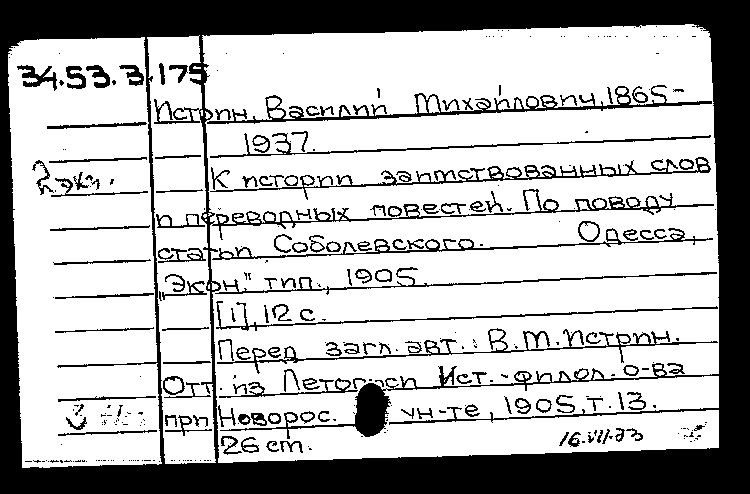 34.53.3.175
Истрин, Василий Михайлович, 1865-
1937.
2 экз.
К истории заимствованных слов
и переводных повестей. По поводу
статьи Соболевского. Одесса,
"Экон." тип., 1905.
[1], 12 с.
Перед загл. авт.: В.М. Истрин.
Отт. из Летописи Ист.-филол. о-ва
при Новорос. ун-те, 1905, т. 13.
26 см.
16.VII.73